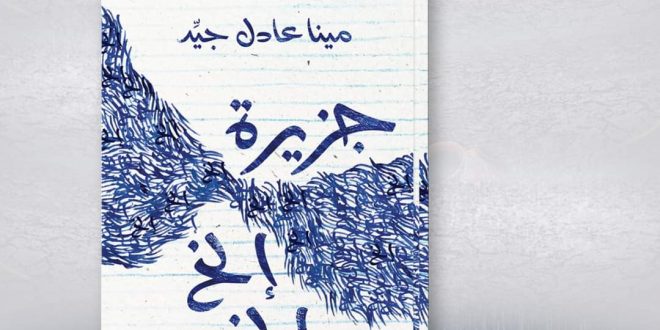 مينا عادل جيِّد
جزيرة
إلخ